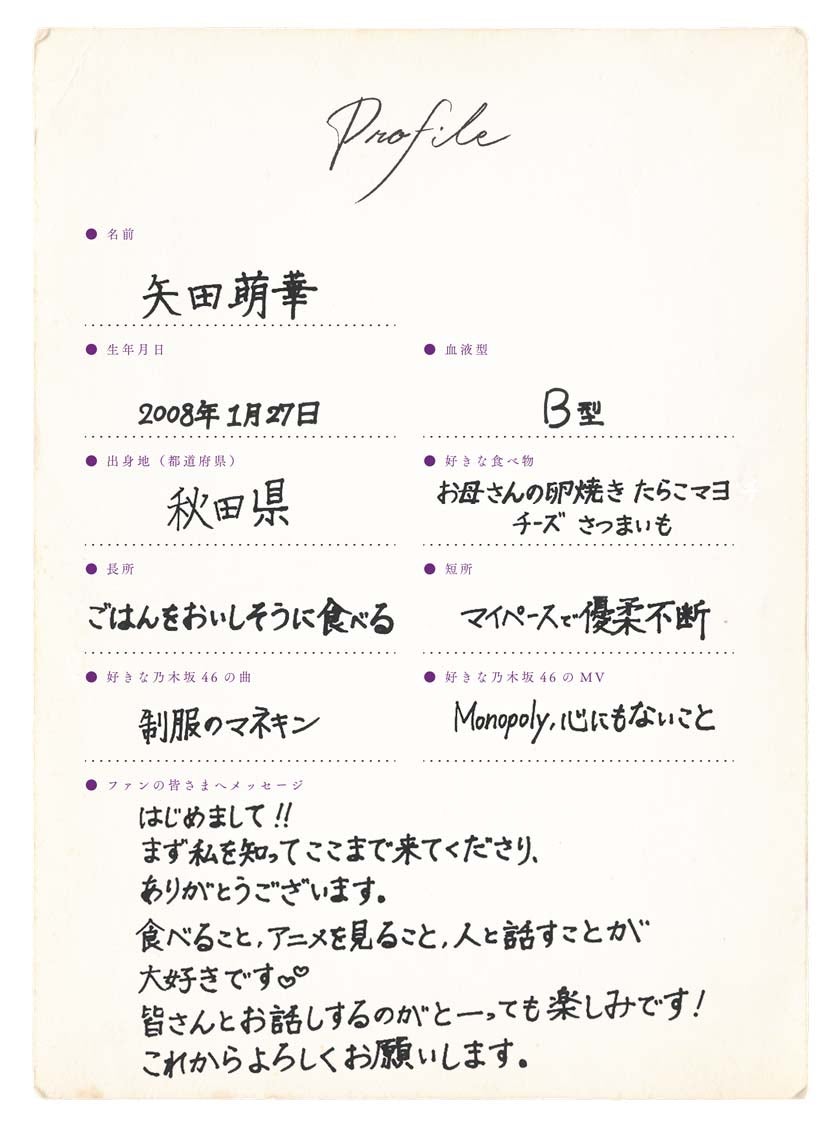 Profile
名前
矢田萌華
生年月日
2008年1月27日
血液型
B型
出身地（都道府県）
秋田県
好きな食べ物
お母さんの卵焼き たらこマヨ
チーズ さつまいも
長所
ごはんをおいしそうに食べる
短所
マイペースで優柔不断
好きな乃木坂46の曲
制服のマネキン
好きな乃木坂46のMV
Monopoly,心にもないこと
ファンの皆さまへメッセージ
はじめまして!!
まず私を知ってここまで来てくださり、
ありがとうございます。
食べること,アニメを見ること,人と話すことが
大好きです♡♡
皆さんとお話しするのがとーっても楽しみです!
これからよろしくお願いします。